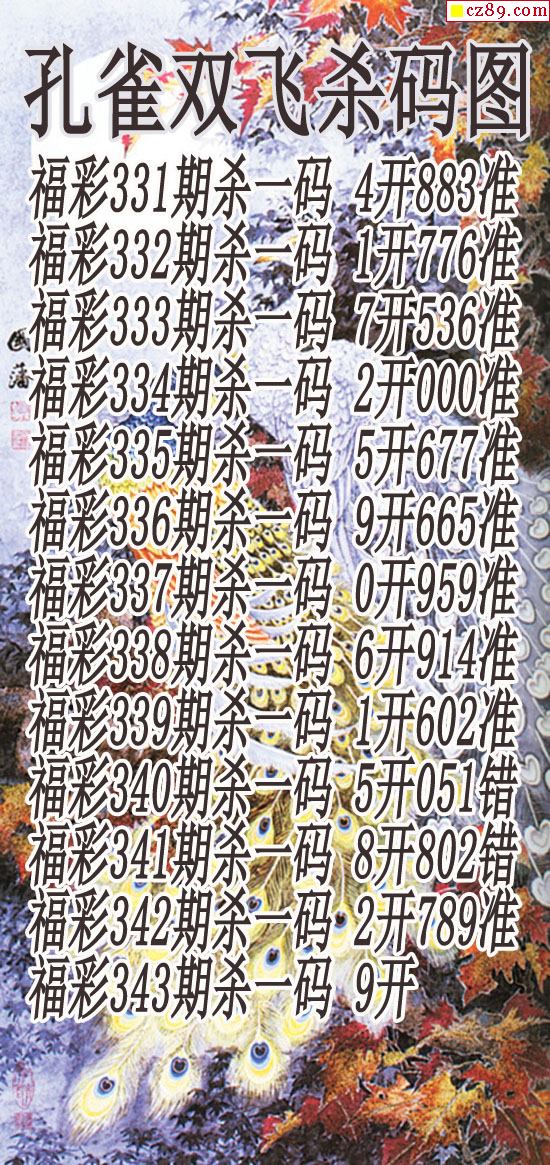 cz89.com
孔雀双飞杀码图
福彩331期杀一码 4开883准
福彩332期杀一码 1开776准
福彩333期杀一码 7开536准
福彩334期杀一码 2开000准
福彩335期杀一码 5开677准
福彩336期杀一码 9开665准
福彩337期杀一码 0开959准
福彩338期杀一码 6开914准
福彩339期杀一码 1开602准
福彩340期杀一码 5开051错
福彩341期杀一码 8开802错
福彩342期杀一码 2开789准
福彩343期杀一码 9开